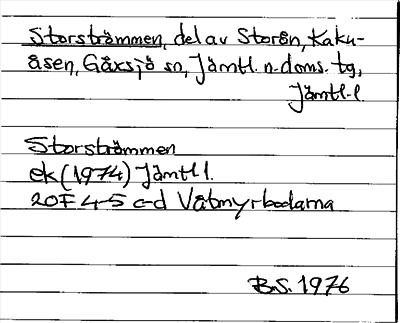 Storströmmen, del av Storån, Kaku-
åsen, Gåxsjö sn, Jämtl. n. doms. tg,
Jämtl. l.
Storströmmen
ek (1974) Jämtl l.
20F 4-5 c-d Våtmyrbodarna
B.S. 1976